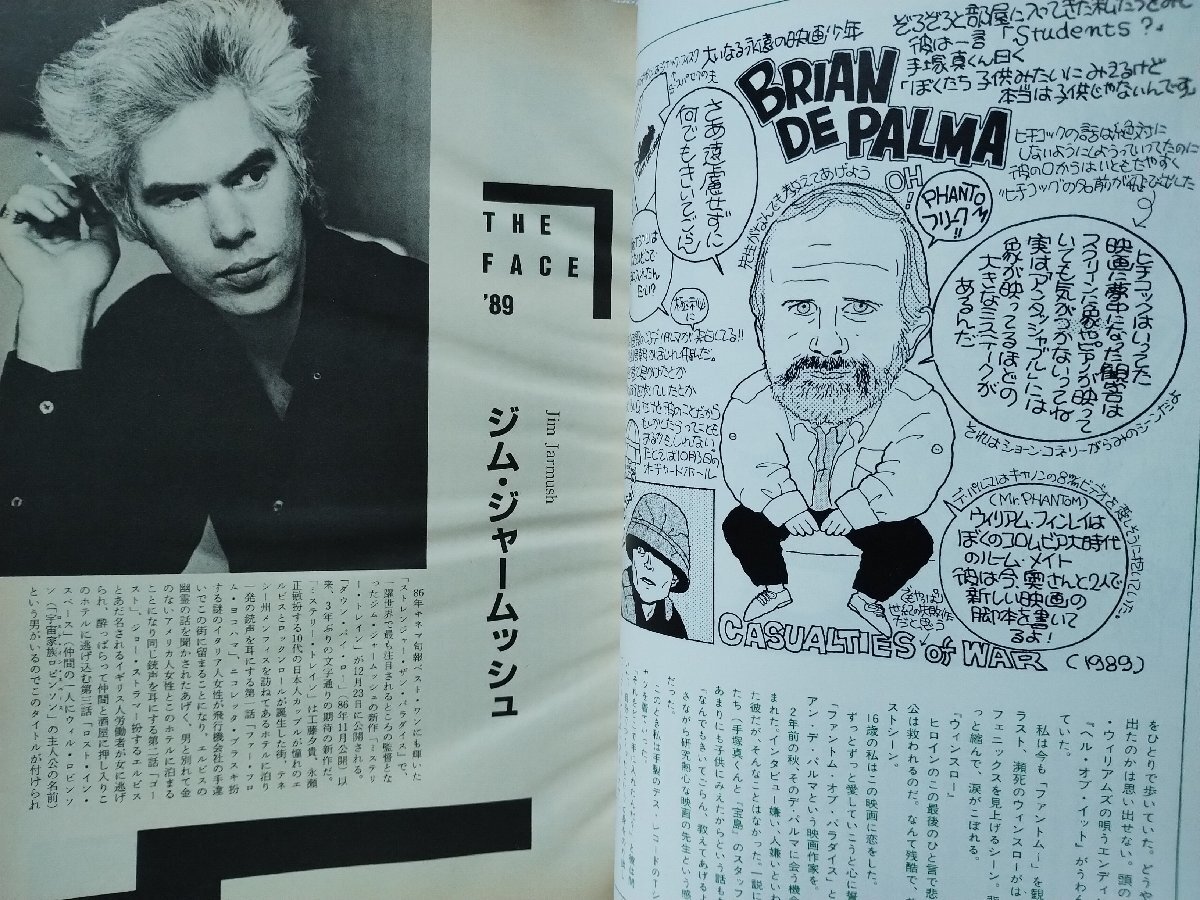 THE
FACE
'89
ジム・ジャームッシュ
Jim Jarmush
86年キネマ旬報ベスト・ワンにも輝いた
「ストレンジャー・ザン・パラダイス」で、
一躍世界で最も注目されるところの監督とな
ったジム・ジャームッシュの新作「ミステリ
ー・トレイン」が12月23日に公開される。
「ダウン・バイ・ロー」(86年11月公開)以
来、3年ぶりの文字通りの期待の新作だ。
「ミステリー・トレイン」は工藤夕貴、永瀬
正敏扮する10代の日本人カップルが憧れのエ
ルビスとロックンロールが誕生した街、テネ
シー州メンフィスを訪ねてあるホテルに泊り
一発の銃声を耳にする第一話「ファー・フロ
ム・ヨコハマ」、ニコレッタ・ブラスキ扮
する謎のイタリア人女性が飛行機会社の手違
いでこの街に留まることになり、エルビスの
幽霊の話を聞かされたあげく、男と別れて金
のないアメリカ人女性とこのホテルに泊まる
ことになり同じ銃声を耳にする第二話「ゴー
スト」、ジョー・ストラマー扮するエルビス
とあだ名されるイギリス人労働者が女に逃げ
られ、酔っぱらって仲間と酒屋に押し入りこ
のホテルに逃げ込む第三話「ロスト・イン・
スペース」(仲間の一人にウィル・ロビンソ
ン(「宇宙家族ロビンソン」の主人公の名前)
という男がいるのでこのタイトルが付けられ
ぞろぞろと部屋に入ってきた私たちをみて
彼は一言「Students?」
手塚真くん曰く
「ぼくたち子供みたいにみえるけど
本当は子供じゃないんです」
大いなる永遠の映画少年
BRIAN
DE PALMA
さあ遠慮せずに
何でもきいてごらん
先生がなんでも教えてあげよう
OH!
PHANTOM
フリーク!!
ヒチコックの話は絶対に
しないようにしようっていってたのに
彼の口からはいともたやすく
"ヒチコック"の名前が飛び出した
ヒチコックはいった
映画に夢中になった観客は
スクリーンに象やピアノが映って
いても気がつかないってね
実はアンタッチャブルには
象が映ってるほどの
大きなミステークが
あるんだ
それはショーン・コネリーがらみのシーンだよ
デ・パルマはキャノンの8ミリビデオを愛しそうに抱いていた。
(Mr. PHANTOM)
ウィリアム・フィンレイは
ぼくのコロムビア大時代
のルーム・メイト
彼は今、奥さんと2人で
新しい映画の
脚本を書いて
るよ!
たとえば10月3日の
オーチャードホール
CASUALTIES of WAR (1989)
をひとりで歩いていた。どうや
出たのかは思い出せない。頭の
・ウィリアムズの唄うエンディ
「ヘル・オブ・イット」がうわん
ていた。
私は今も「ファントム〜」を観
ラスト、瀕死のウィンスローがは
フェニックスを見上げるシーン。
っと縮んで、涙がこぼれる。
「ウィンスロー」
ヒロインのこの最後のひと言で悲
公は救われるのだ。なんて残酷で、
ストシーン。
16歳の私はこの映画に恋をした。
ずっとずっと愛していこうと心に誓
「ファントム・オブ・パラダイス」と
アン・デ・パルマという映画作家を。
2年前の秋、そのデ・パルマに会う機会
まれた。インタビュー嫌い、人嫌いといわ
た彼だが、そんなことはなかった。一説に
たち(手塚真くんと「宝島」のスタッフ
あまりにも子供にみえたからという話も
「なんでもきいてごらん、教えてあげるよ
さながら研究熱心な映画の先生という感
だった。